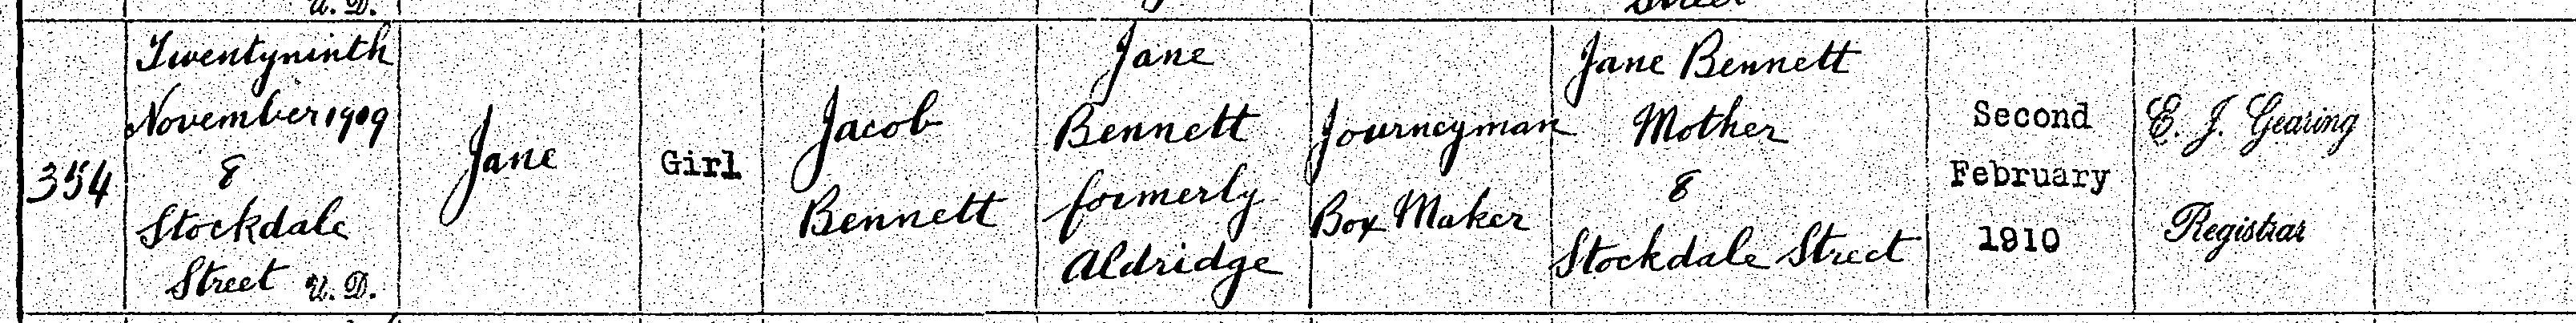 354
Twentyninth
November 1909
8
Stockdale
Street U.D.
Jane
Girl
Jacob
Bennett
Jane
Bennett
formerly
Aldridge
Journeyman
Box Maker
Jane Bennett
Mother
8
Stockdale Street
Second
February
1910
E. J. Gearing
Registrar